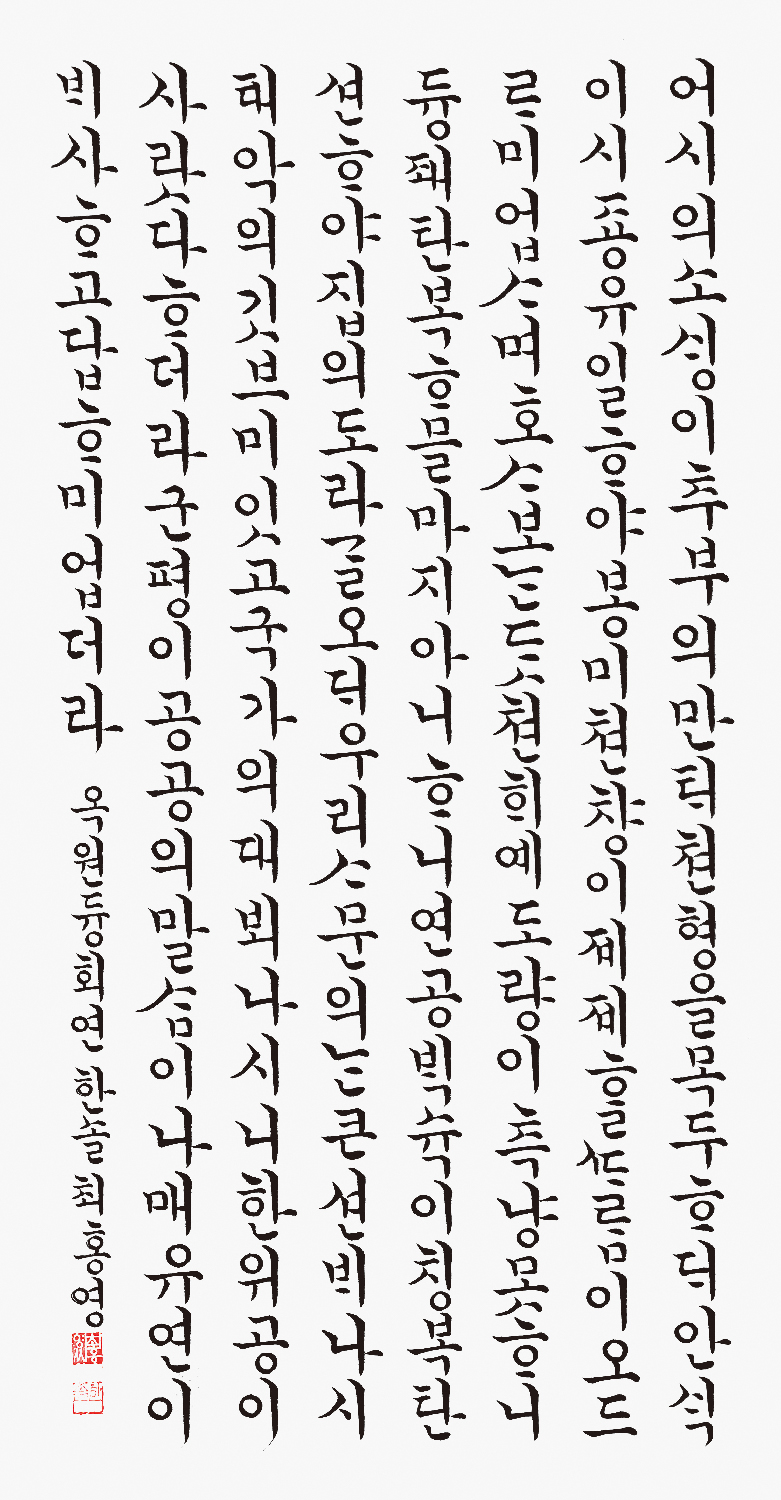 어시의소ᄉᆡᆼ이추부의만ᄃᆡ쳔형을목두ᄒᆞᄃᆡ안ᄉᆡᆨ
이시죵유일ᄒᆞ야봉미쳔챵이졔졔ᄒᆞᆯᄯᆞᄅᆞᆷ이오드
르미업ᄉᆞ며호ᄉᆞ보ᄂᆞᆫ듯쳔희예도량이측냥못ᄒᆞ니
듕패탄복ᄒᆞᄆᆞᆯ마지아니ᄒᆞ니연공ᄇᆡᆨ슉이칭복탄
션ᄒᆞ야집의도라ᄀᆞᆯ오ᄃᆡ우리ᄉᆞ문의ᄂᆞᆫ큰션ᄇᆡ나시
ᄐᆡ악의깃브미잇고국가의대뵈나시니한위공이
사랏다ᄒᆞ더라군평이공공의말ᄉᆞᆷ이나매유연이
ᄇᆡ사ᄒᆞ고답ᄒᆞ미업더라 옥원듕회연 한솔 최홍영